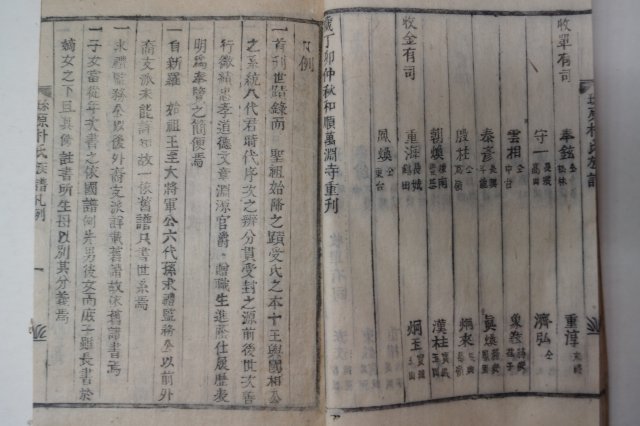 收單有司
奉鉉 仝 松林 重淳
守一 長城 高田 濟弘 仝
雲相 仝 中台 象
泰彥 長興 眞煥
殷柱 炳來
朝煥 漢柱
重源 長城 炳玉
收金有司
鳳煥 仝 東台
歲丁卯仲秋和順萬淵寺重刊
凡例
一首刊世蹟錄而 聖祖始降之蹟受氏之本十王與國相公
之系統八代君時代序次之辨分貫受封之源前後世次善
行徽績忠孝道德文章淵源官爵 贈職生進蔭仕履歷表
明爲奉覽之簡便焉
一自新羅 始祖王至大將軍公六代孫 禮監務公以前外
裔支派未能詳知故一依舊譜只書世系焉
一 禮監務公以後外裔支派詳載舊譜故依舊譜書焉
一子女當從年次書之依國譜例先男後女而庶子雖長書於
嫡女之下且其傍註書所生母以別其分義焉
朴氏族譜
朴氏族譜凡例 一